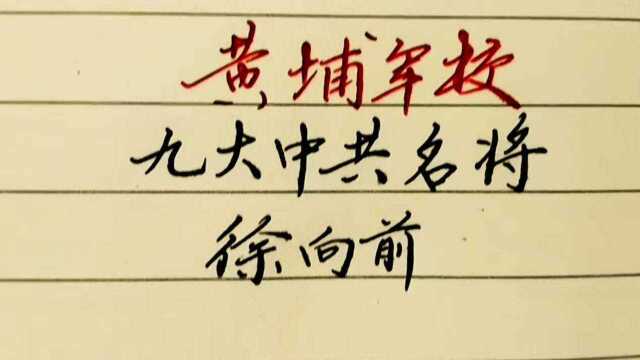 黄埔军校
九大中共名将
徐向前